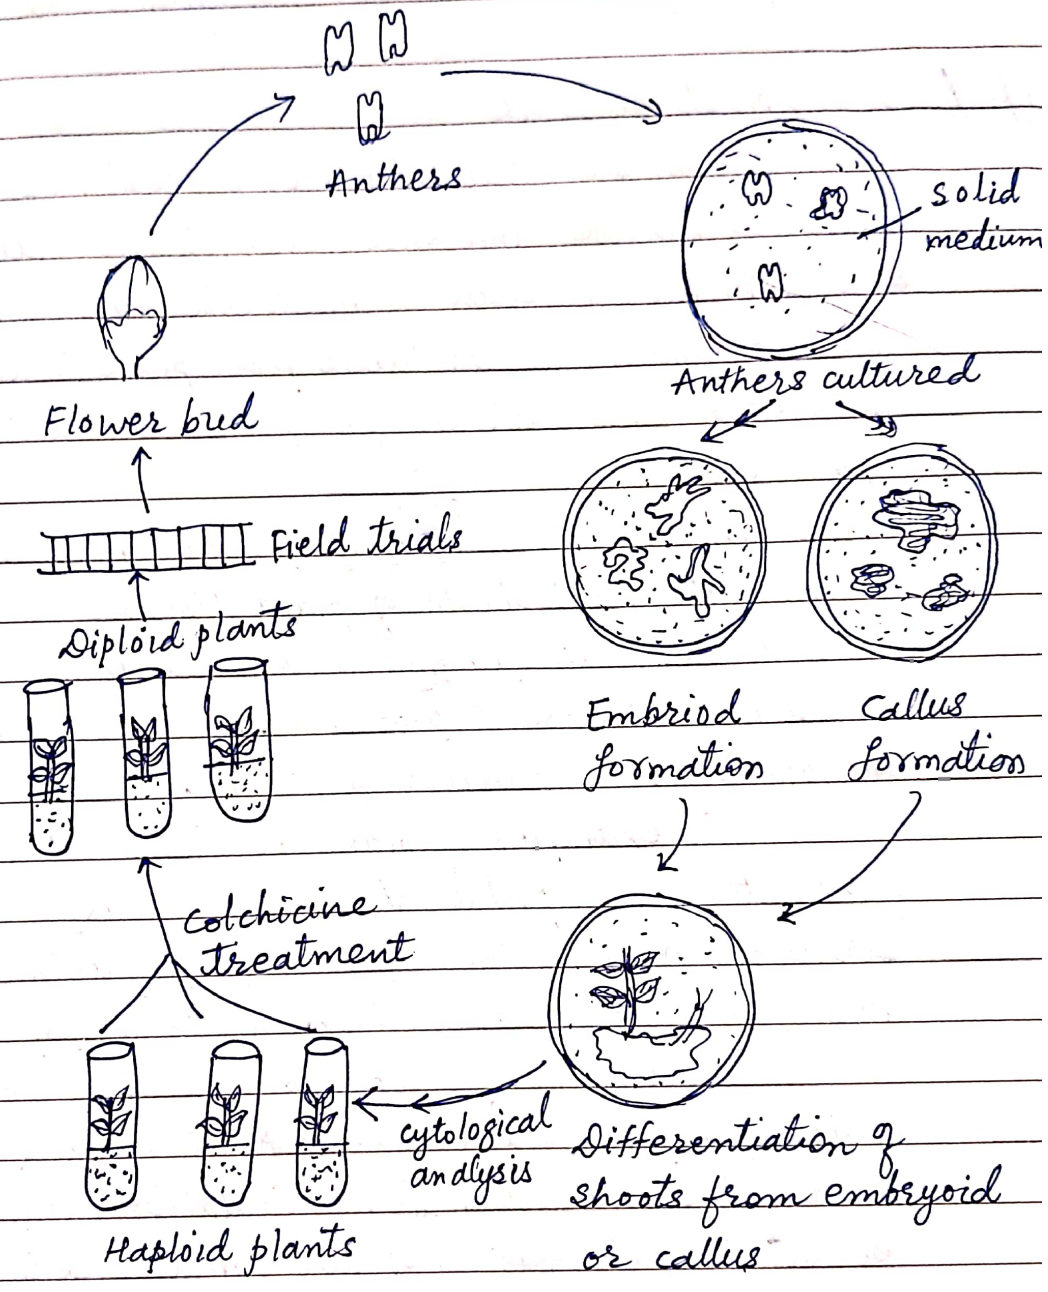 Anthers
solid
medium
Anthers cultured
Flower bud
Field trials
Diploid plants
Embriod
formation
Callus
formation
Colchicine
treatment
cytological
analysis
Differentiation of
shoots from embryoid
or callus
Haploid plants